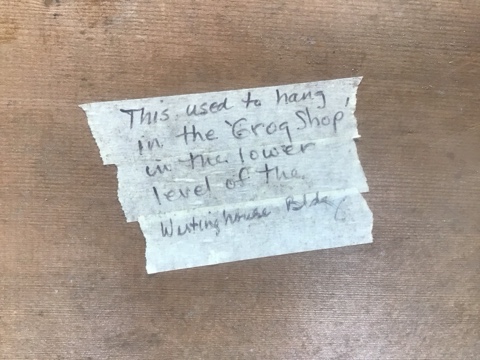 This used to hang
in the 'Grog Shop,'
in the lower
level of the
Westinghouse Bldg